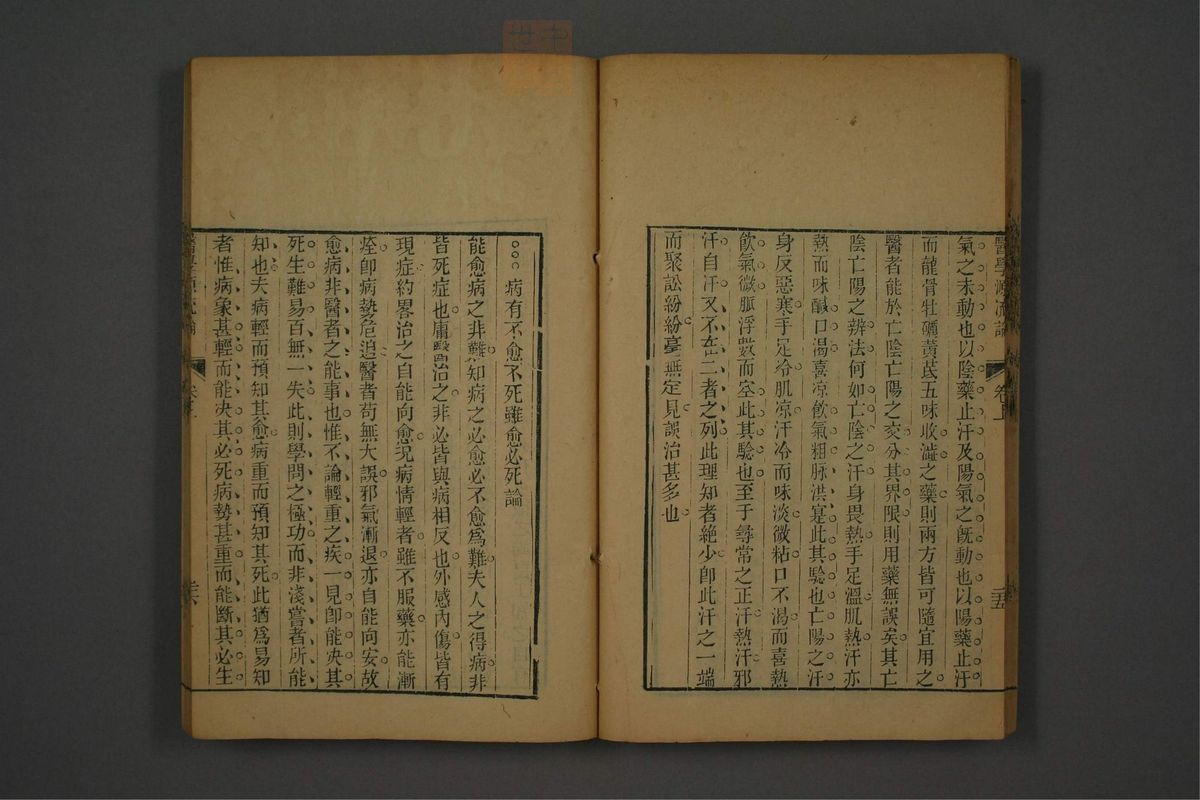 醫學源流論 卷上 二五
氣之未動也以陰藥止汗及陽氣之既動也以陽藥止汗
而龍骨牡礪黃芪五味收澁之藥則兩方皆可隨宜用之
醫者能於亡陰亡陽之交分其界限則用藥無誤矣其亡
陰亡陽之辨法何如亡陰之汗身畏熱手足溫肌熱汗亦
熱而味鹹口渴喜凉飮氣粗脉洪實此其驗也亡陽之汗
身反惡寒手足冷肌凉汗冷而味淡微粘口不渴而喜熱
飮氣微脈浮數而空此其驗也至于尋常之正汗熱汗邪
汗自汗又不在二者之列此理知者絶少卽此汗之一端
而聚訟紛紛毫無定見誤治甚多也
病有不愈不死雖愈必死論
能愈病之非難知病之必愈必不愈爲難夫人之得病非
皆死症也庸醫治之非必皆與病相反也外感內傷皆有
現症約畧治之自能向愈况病情輕者雖不服藥亦能漸
痊卽病勢危迫醫者苟無大誤邪氣漸退亦自能向安故
愈病非醫者之能事也惟不論輕重之疾一見卽能决其
死生難易百無一失此則學問之極功而非淺嘗者所能
知也夫病輕而預知其愈病重而預知其死此猶爲易知
者惟病象甚輕而能决其必死病勢甚重而能斷其必生